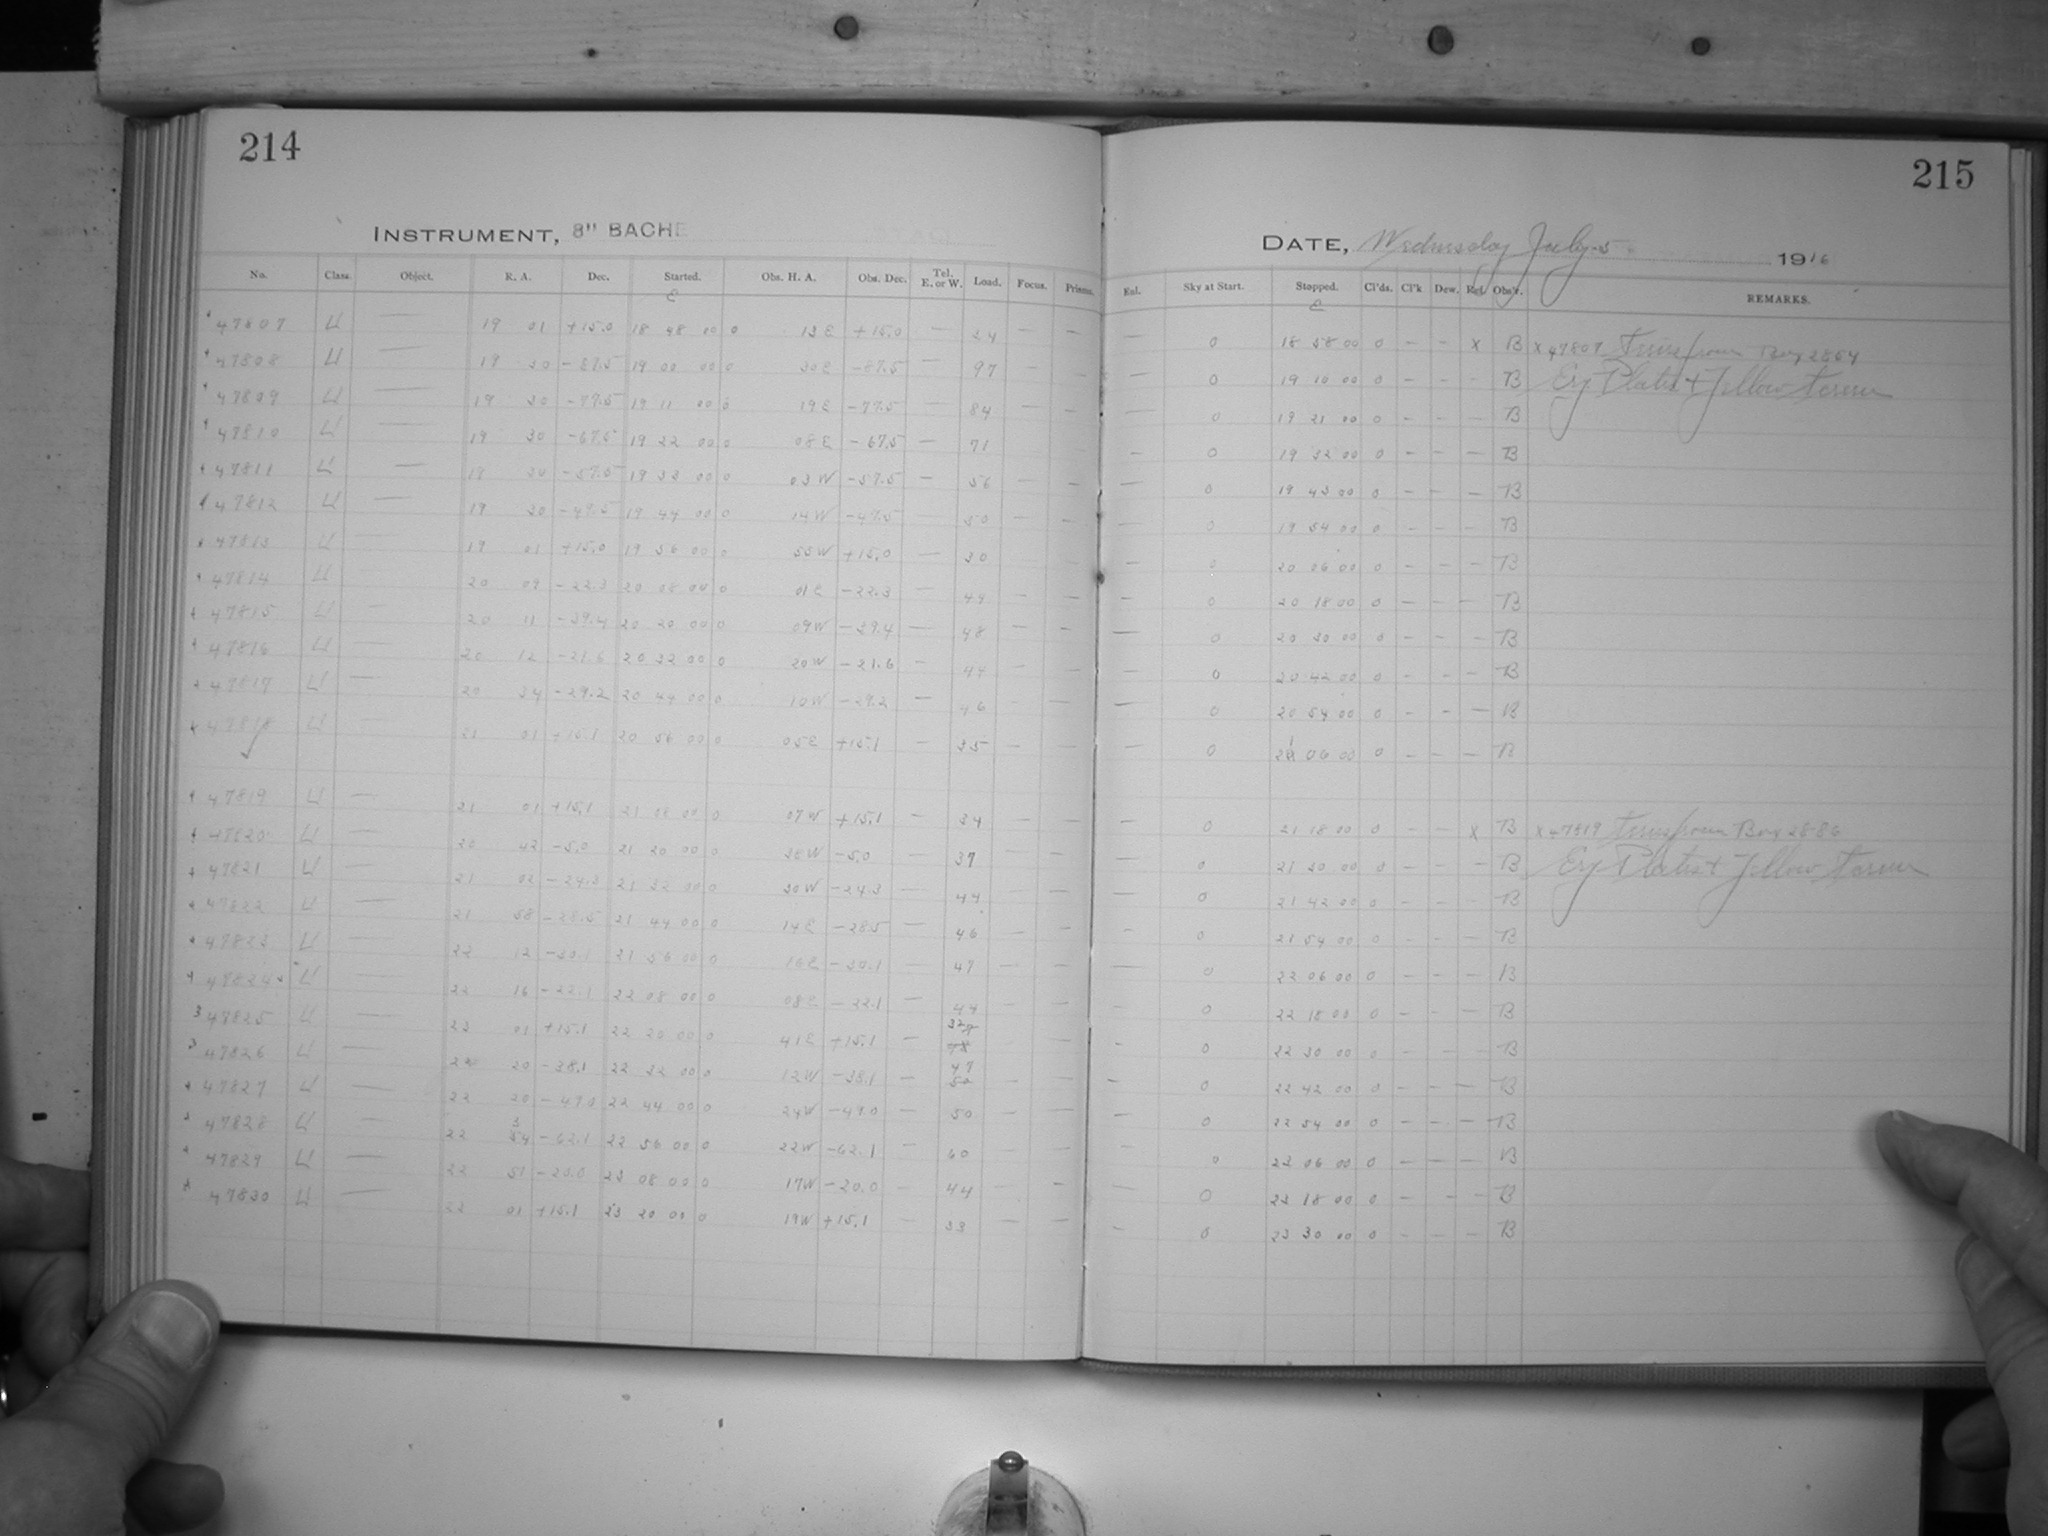 214
INSTRUMENT, 8" BACHE
No. Class. Object. R. A. Dec. Started. Obs. H. A. Obs. Dec. Tel. E. or W. Load. Focus. Prisms.
E
47807 U — 19 01 +15.0 18 48 00 0 13 E +15.0 — 34 — —
47808 U — 19 30 -87.5 19 00 00 0 30 E -87.5 — 97 — —
47809 U — 19 30 -77.5 19 11 00 0 19 E -77.5 — 84 — —
47810 U — 19 30 -67.5 19 22 00 0 08 E -67.5 — 71 — —
47811 U — 30 -57.5 19 33 00 0 03 W -57.5 — 56 — —
47812 U — 19 30 -47.5 19 44 00 0 14 W -47.5 — 50 — —
47813 U — 19 01 +15.0 19 56 00 0 55 W +15.0 — 30 — —
47814 U — 20 09 -22.3 20 08 00 0 01 E -22.3 — 44 — —
47815 U — 20 11 -39.4 20 20 00 0 09 W -39.4 — 48 — —
47816 U — 20 12 -21.6 20 32 00 0 20 W -21.6 — 44 — —
47817 U — 20 34 -29.2 20 44 00 0 10 W -29.2 — 46 — —
47818 U — 21 01 +15.1 20 56 00 0 05 E +15.1 — 35 — —
47819 U — 21 01 +15.1 21 08 00 0 07 W +15.1 — 34 — —
47820 U — 20 42 -5.0 21 20 00 0 38 W -5.0 — 37 — —
47821 U — 21 02 -24.3 21 32 00 0 30 W -24.3 — 44 — —
47822 U — 21 58 -28.5 21 44 00 0 14 E -28.5 — 46 — —
47823 U — 22 12 -30.1 21 56 00 0 16 E -30.1 — 47 — —
47824 U — 22 16 -22.1 22 08 00 0 08 E -22.1 — 44 — —
47825 U — 23 01 +15.1 22 20 00 0 41 E +15.1 —
47826 U — 22 20 -38.1 22 32 00 0 12 W -38.1 — 47 — —
47827 U — 22 20 -49.0 22 44 00 0 24 W -49.0 — 50 — —
47828 U — 22 34 -62.1 22 56 00 0 22 W -62.1 — 60 — —
47829 U — 22 51 -20.0 23 08 00 0 17 W -20.0 — 44 — —
47830 U — 01 +15.1 23 20 00 0 19 W +15.1 — 33 — —
215
DATE, Wednesday July 5. 1916
Enl. Sky at Start. Stopped. Cl'ds. Cl'k Dew. Ref. Obs'r. REMARKS.
E
— 0 18 58 00 0 — — x B x 47807 Trans from Box
— 0 19 10 00 0 — — — B Plates + Yellow
— 0 19 21 00 0 — — — B
— 0 19 32 00 0 — — — B
— 0 19 43 00 0 — — — B
— 0 19 54 00 0 — — — B
— 0 20 06 00 0 — — — B
— 0 20 18 00 0 — — — B
— 0 20 30 00 0 — — — B
— 0 20 42 00 0 — — — B
— 0 20 54 00 0 — — — B
— 0 21 06 00 0 — — — B
— 0 21 18 00 0 — — x B x 47819 Trans from Box 2886
— 0 21 30 00 0 — — — B Plates + Yellow
— 0 21 42 00 0 — — — B
— 0 21 54 00 0 — — — B
— 0 22 06 00 0 — — — B
— 0 22 18 00 0 — — — B
— 0 22 30 00 0 — — — B
— 0 22 42 00 0 — — — B
— 0 22 54 00 0 — — — B
— 0 23 06 00 0 — — — B
— 0 23 18 00 0 — — — B
— 0 23 30 00 0 — — — B